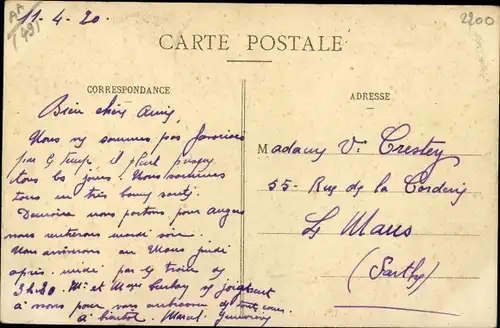 11-4-20.
2200
CARTE POSTALE
CORRESPONDANCE
ADRESSE
Bien chers Amis,
Nous ne sommes pas favorisés
par le temps il pleut presque
tous les jours. Nous sommes
tous en très bonne santé.
Demain nous partons pour Angers
nous rentrerons mardi soir.
Nous arriverons au Mans jeudi
après-midi par le train de
3h20. Mr et Mme se joignent
à nous pour vous embrasser de tout cœur.
à bientôt. Marcel
Madame Vve Crestey
55- Rue de la Corderie
Le Mans
(Sarthe)